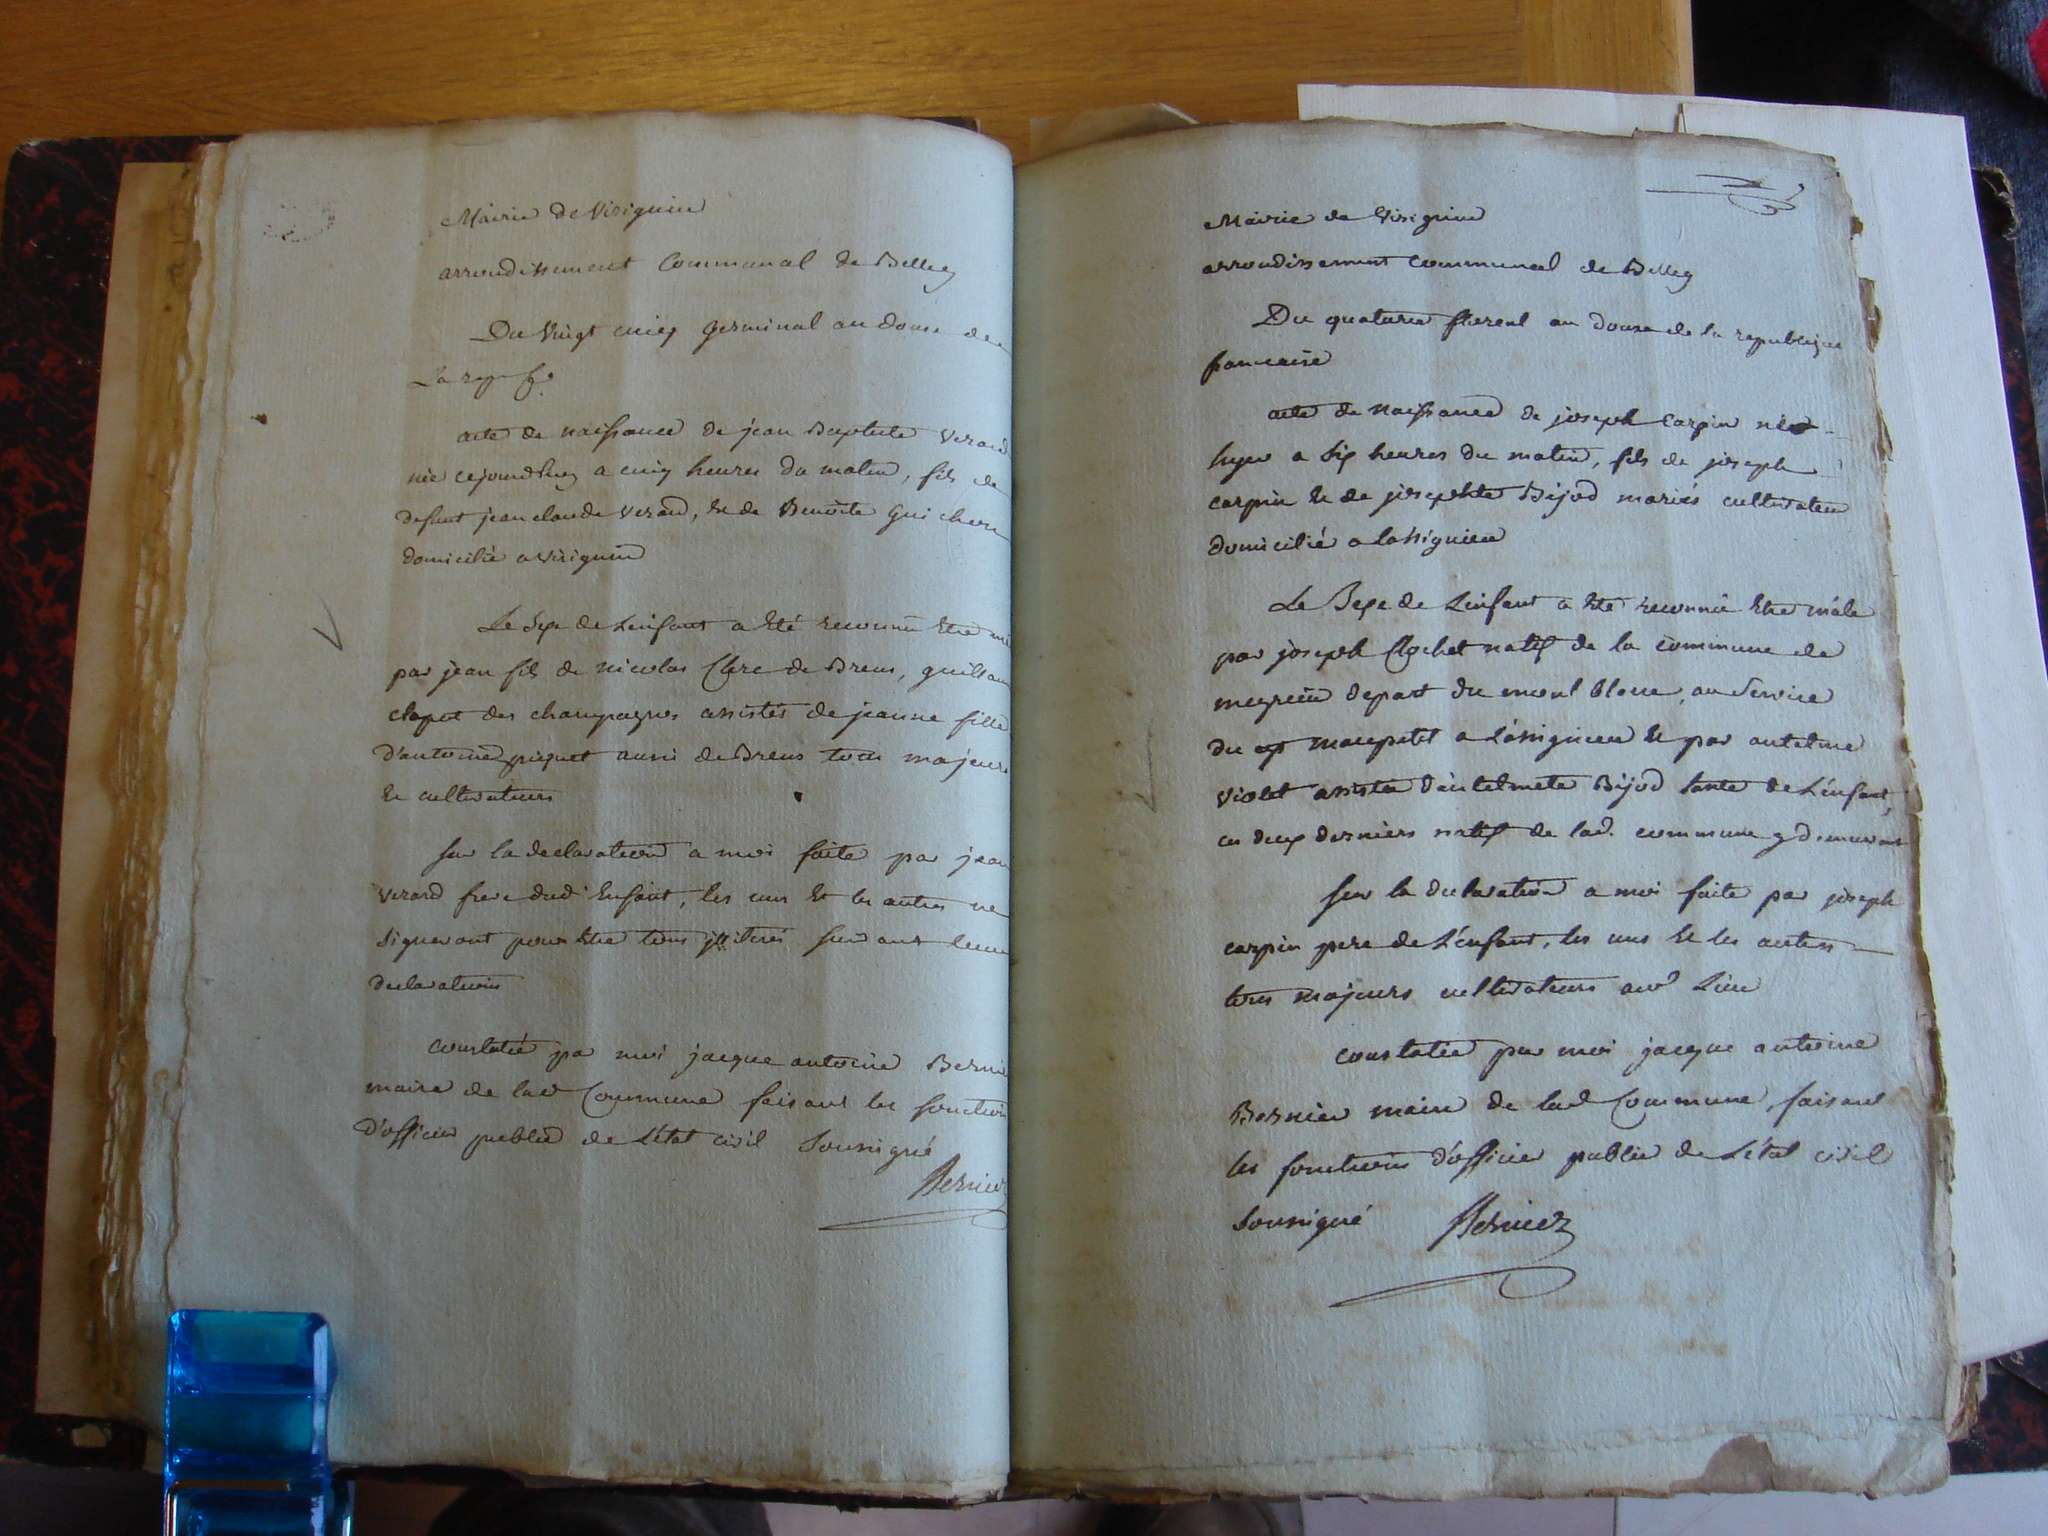 Mairie de Virignin
arrondissement Communal de Belley
Du Vingt cinq Germinal an douze de
La rep. fse
acte de naissance de jean Baptiste Verard
née cejourdhuy a cinq heures du matin, fils de
defunt jean claude Verard, et de Benoite Guicher
domicilié a virignin
Le Sexe de L'enfant a Eté reconnu Etre
par jean fils de nicolas Clerc de Brens, guillau
des champagnes assistés de jeanne fille
d'antoine piquet aussi de Brens tous majeurs
et cultivateurs
Sur la declaration a moi faite par jean
verard frere dud. Enfant, les uns Et les autres ne
signeront pour Etre tous illiterés suivant leur
declaration
constatée par moi jacque antoine Bernie
maire de lad. Commune faisant les fonction
d'officier public de L'état civil Soussigné
Bernier
Mairie de Virignin
arrondissement communal de Belley
Du quatorze floreal an douze de la republique
francaise
acte de naissance de joseph carpin né
hyer a six heures du matin, fils de joseph
carpin et de josephte Bijod mariés cultivateur
domicilié a Lassignieu
Le Sexe de L'enfant a Eté reconnu Etre mâle
par joseph Clochet natif de la commune de
depart. du mont blanc, au Service
du maupetit a Lassignieu Et par antelme
violet assistée d'antelmete Bijod tante de L'enfant,
ces deux derniers natif de lad. commune y demeurant
Sur la declaration a moi faite par joseph
carpin pere de L'enfant, les uns Et les autres
tous majeurs cultivateurs aud. Lieu
constatée par moi jacque antoine
Bernier maire de lad. Commune, faisant
les fonctions d'officier public de L'état civil
Soussigné Bernier